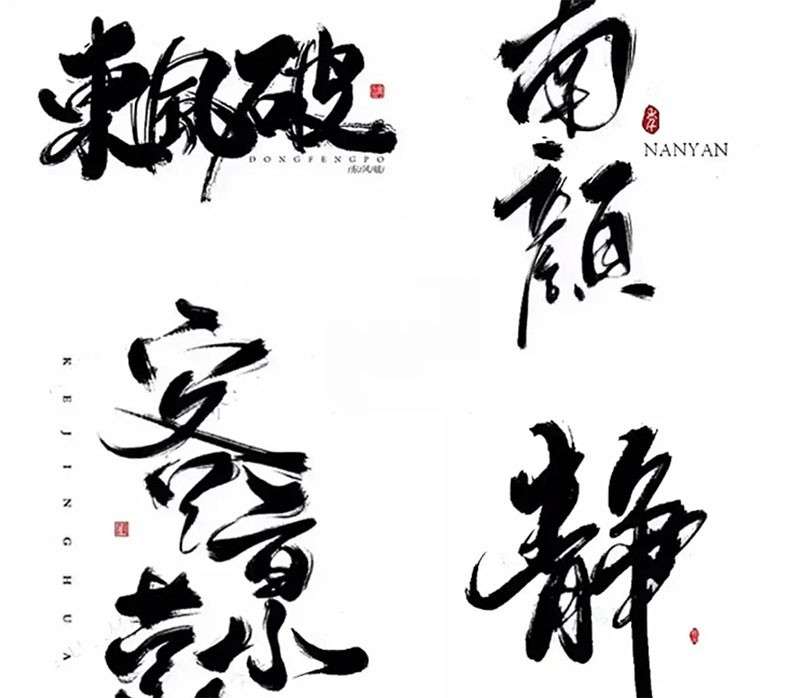 東風破
DONGFENGPO
南
顏
NANYAN
KEJINGHUA
客
景
靜